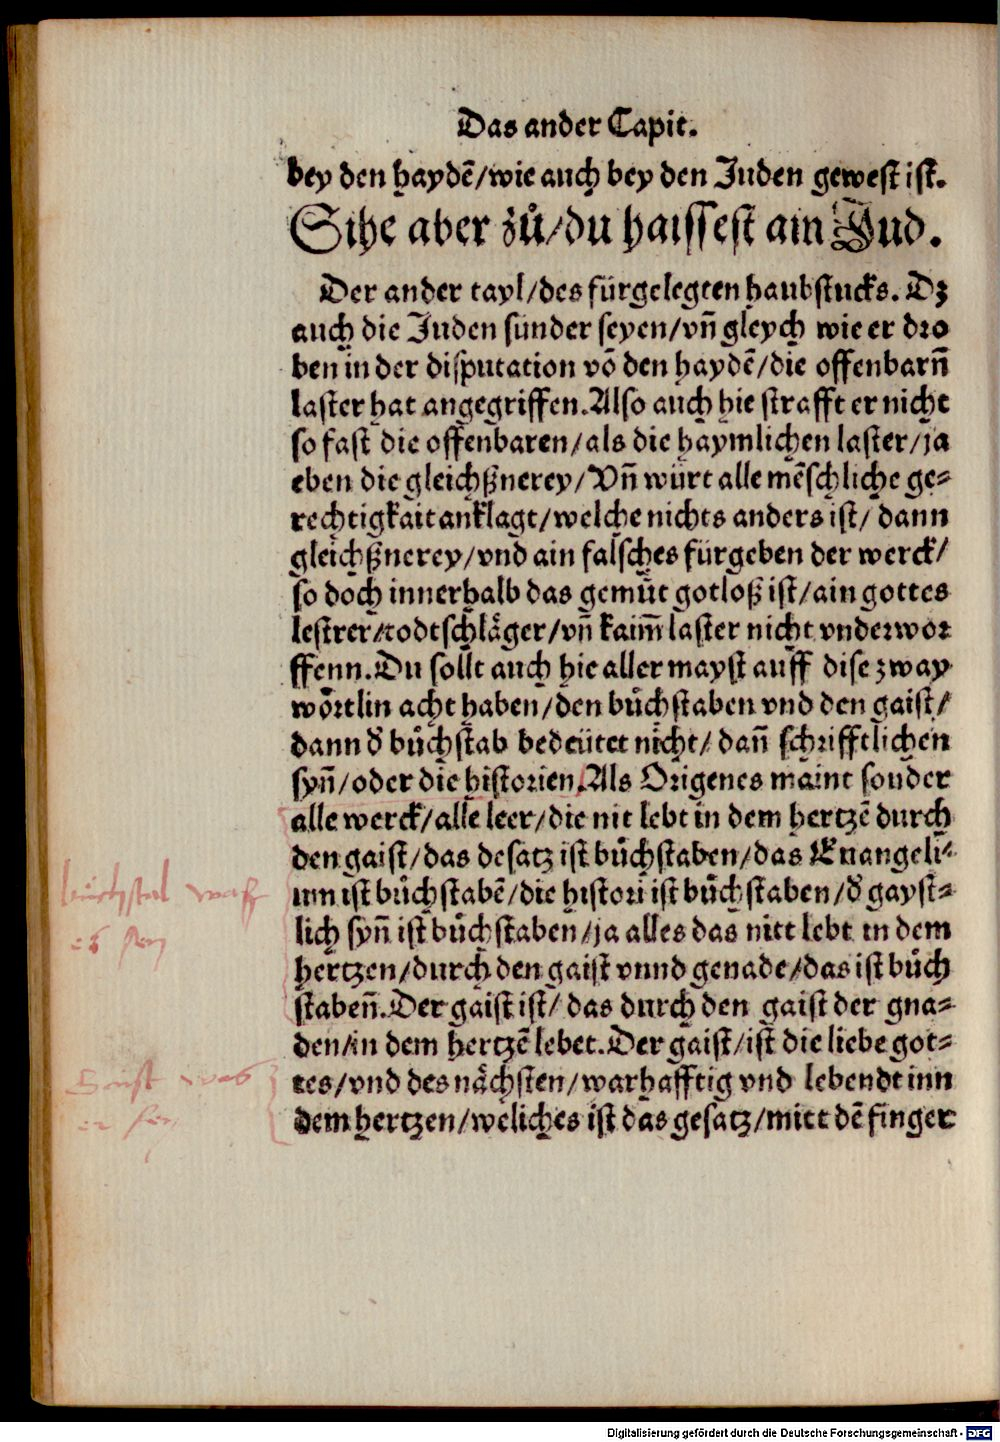 Das ander Capit.
bey den haydẽ/wie auch bey den Juden gewest ist.
Sihe aber zů/du haissest ain Jud.
Der ander tayl/des fürgelegten haubstucks. Dz
auch die Juden sünder seyen/vñ gleych wie er dro
ben in der disputation võ den haydẽ/die offenbarñ
laster hat angegriffen. Also auch hie strafft er nicht
so fast die offenbaren/als die haymlichen laster/ja
eben die gleichßnerey/Vñ würt alle mẽschliche ge⸗
rechtigkait anklagt/welche nichts anders ist/ dann
gleichßnerey/vnd ain falsches fürgeben der werck/
so doch innerhalb das gemüt gotloß ist/ain gottes
lestrer/todtschläger/vñ kaim̃ laster nicht vnderwor
ffenn. Du sollt auch hie aller mayst auff dise zway
wörtlin acht haben/den bůchstaben vnd den gaist/
dann d̕ bůchstab bedeütet nicht/ dañ schrifftlichen
syñ/oder die historien. Als Origenes maint sonder
alle werck/alle leer/die nit lebt in dem hertzẽ durch
den gaist/das desatz ist bůchstaben/das Euangeli⸗
um ist bůchstabẽ/die histori ist bůchstaben/d̕ gayst⸗
lich syñ ist bůchstaben/ja alles das nitt lebt in dem
hertzen/durch den gaist vnnd genade/das ist bůch
stabeñ. Der gaist ist/ das durch den gaist der gna⸗
den/in dem hertzẽ lebet. Der gaist/ist die liebe got⸗
tes/vnd des nächsten/warhafftig vnd lebendt inn
dem hertzen/weliches ist das gesatz/mitt dẽ finger
bůchstab was
es sey
Geist was
er sey
Digitalisierung gefördert durch die Deutsche Forschungsgemeinschaft - DFG